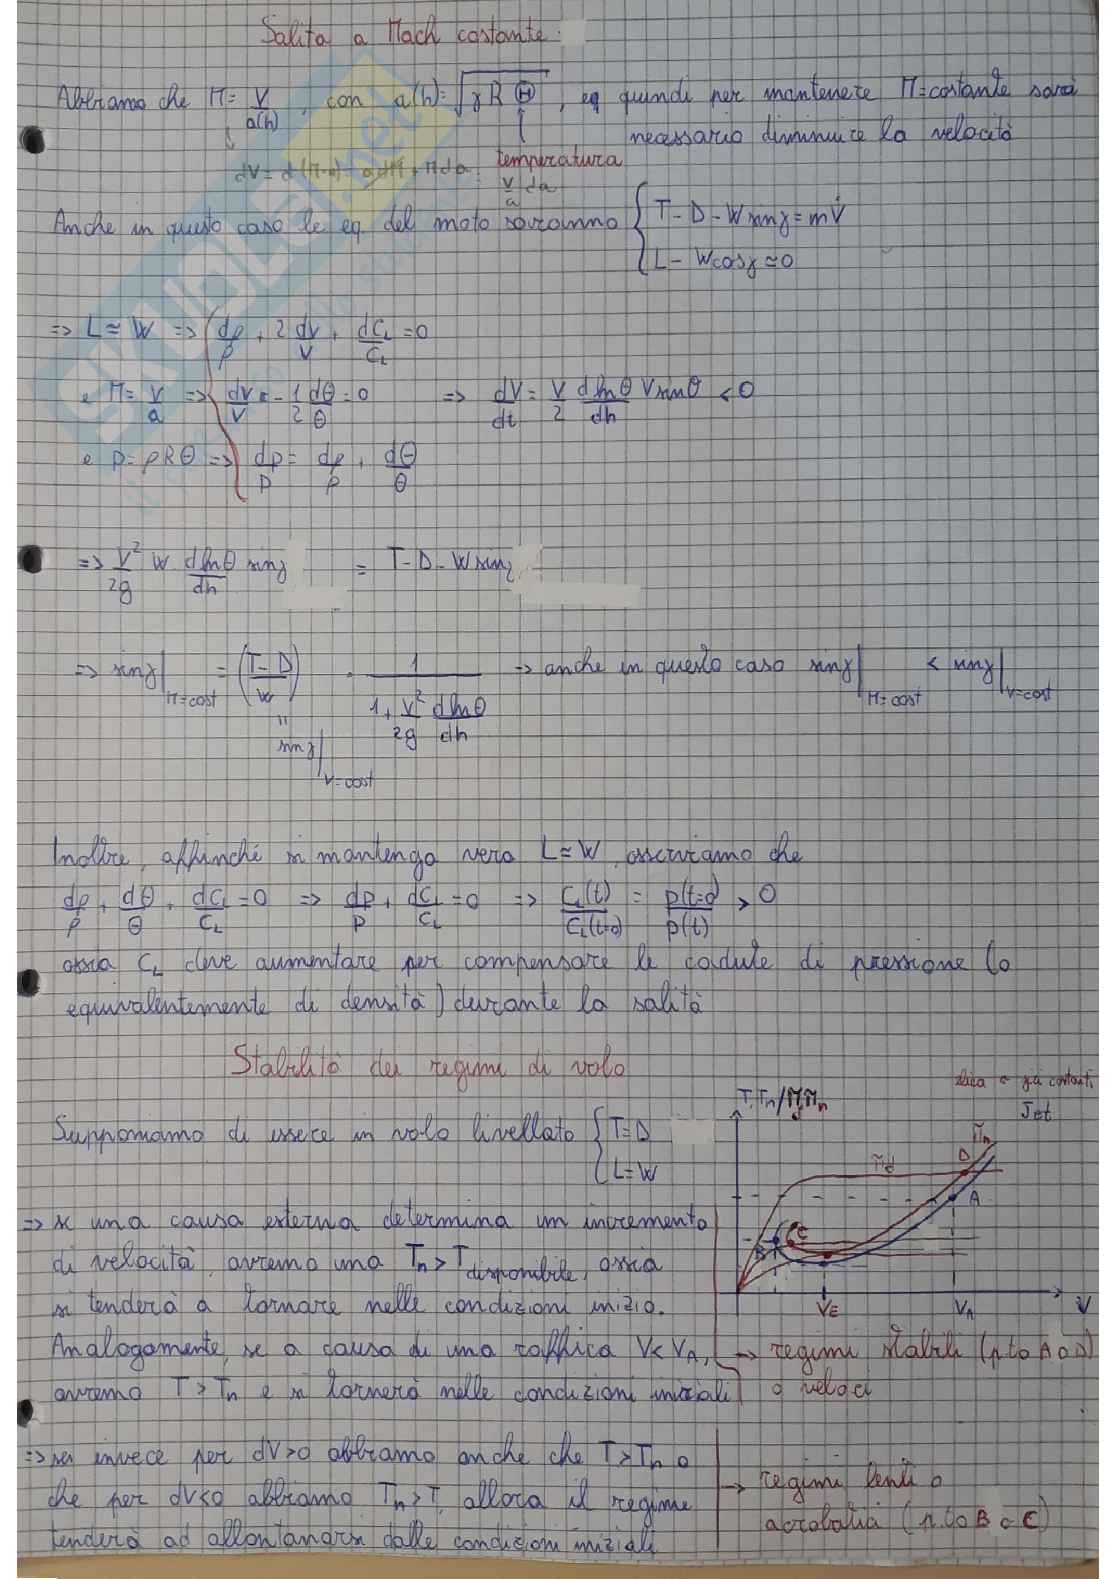 Salita a Mach costante:
Abbiamo che M = V/a(h), con a(h) = √(γRΘ), e quindi per mantenere M = costante sarà
necessario diminuire la velocità
dV = d(M·a) = a dM + M da
temperatura
V/a da
Anche in questo caso le eq. del moto saranno { T - D - W sinγ = mV̇
L - W cosγ ≃ 0
=> L ≃ W => dρ/ρ + 2 dV/V + dC_L/C_L = 0
e M = V/a => dV/V - 1/2 dΘ/Θ = 0 => dV/dt = V/2 dlnΘ/dh V sinθ < 0
e p = ρRΘ => dp/p = dρ/ρ + dΘ/Θ
=> V²/2g W dlnΘ/dh sinγ = T - D - W sinγ
=> sinγ|M=cost = (T - D/W) · 1/(1 + V²/2g dlnΘ/dh) => anche in questo caso sinγ|M=cost < sinγ|V=cost
"
sinγ|V=cost
Inoltre, affinché si mantenga vera L ≃ W, osserviamo che
dρ/ρ + dΘ/Θ + dC_L/C_L = 0 => dp/p + dC_L/C_L = 0 => C_L(t)/C_L(t=0) = p(t=0)/p(t) > 0
ossia C_L deve aumentare per compensare le cadute di pressione (o
equivalentemente di densità) durante la salita
Stabilità dei regimi di volo
T, Tn/Π, Πn
elica a costanti
Jet
Supponiamo di essere in volo livellato { T = D
L = W
Πn
D
Πd
A
C
B
VE
VA
V
=> se una causa esterna determina un incremento
di velocità, avremo una Tn > T disponibile, ossia
si tenderà a tornare nelle condizioni inizio.
Analogamente, se a causa di una raffica V < VA,
avremo T > Tn e si tornerà nelle condizioni iniziali
→ regimi stabili (p.to A o D)
o veloci
=> se invece per dV > 0 abbiamo anche che T > Tn o
che per dV < 0 abbiamo Tn > T, allora il regime
tenderà ad allontanarsi dalle condizioni iniziali
→ regimi lenti o
acrobazia (p.to B o C)
SKUOLA.net